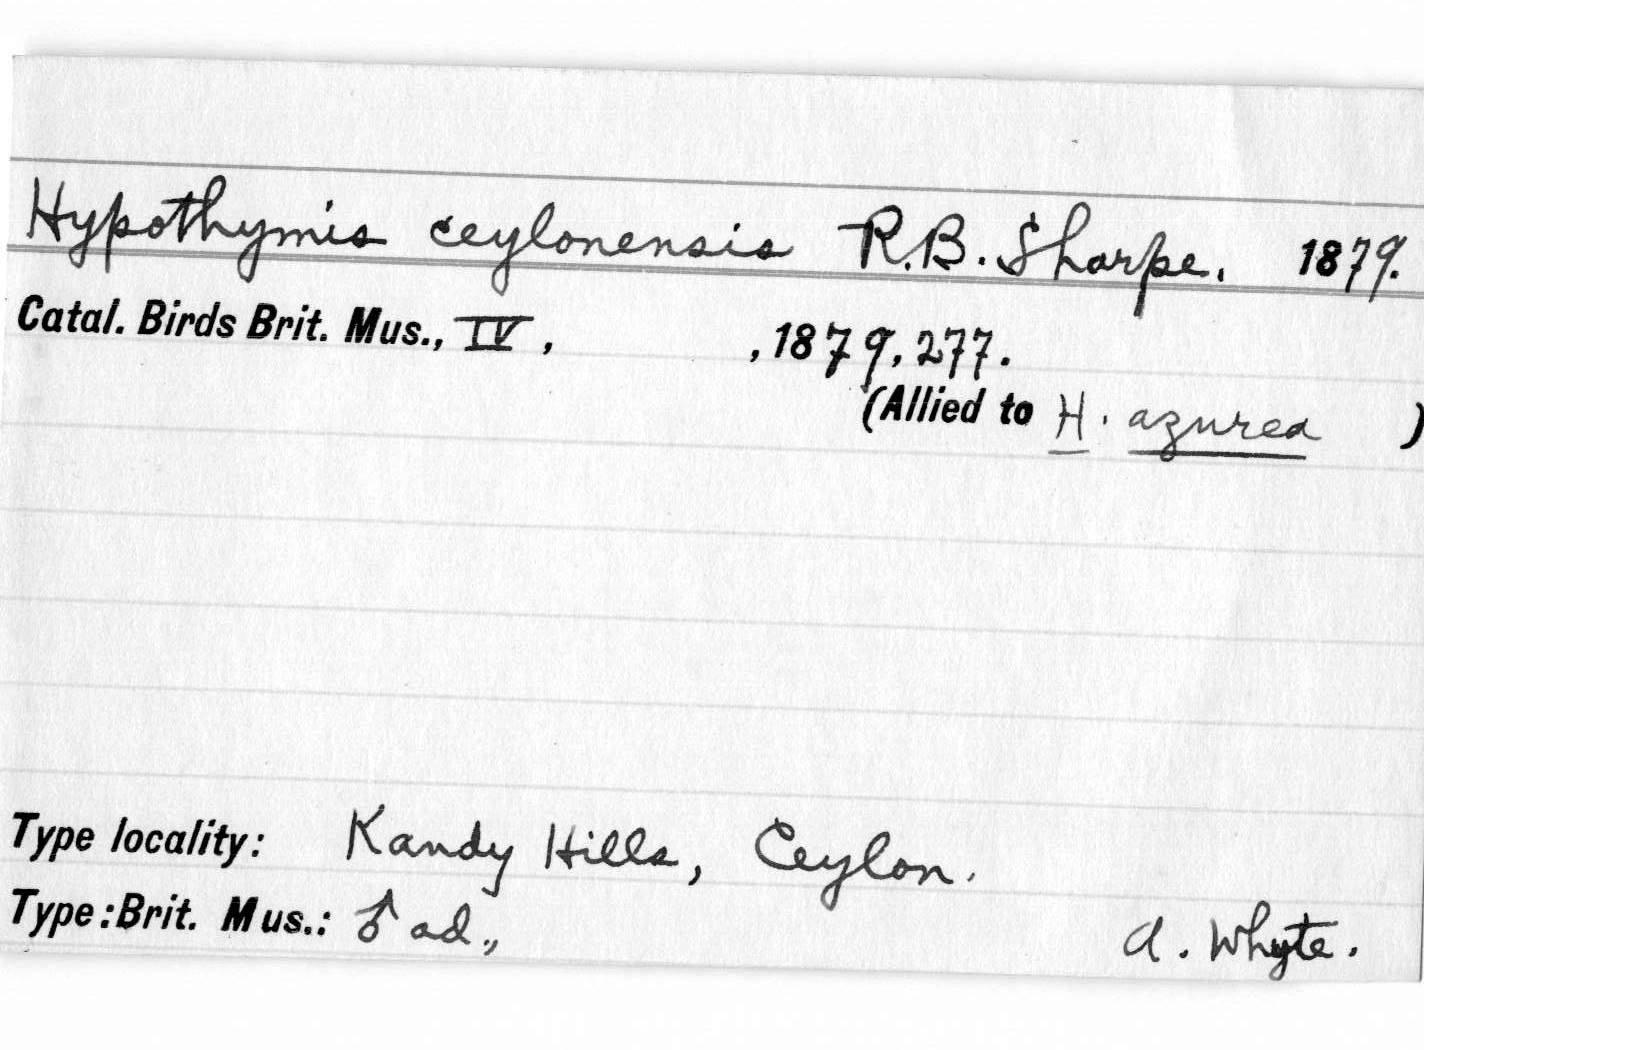 Hypothymis ceylonensis R.B. Sharpe. 1879.
Catal. Birds Brit. Mus., IV, , 1879, 277.
(Allied to H. azurea )
Type locality: Kandy Hills, Ceylon.
Type: Brit. Mus.: ♂ ad., A. Whyte.